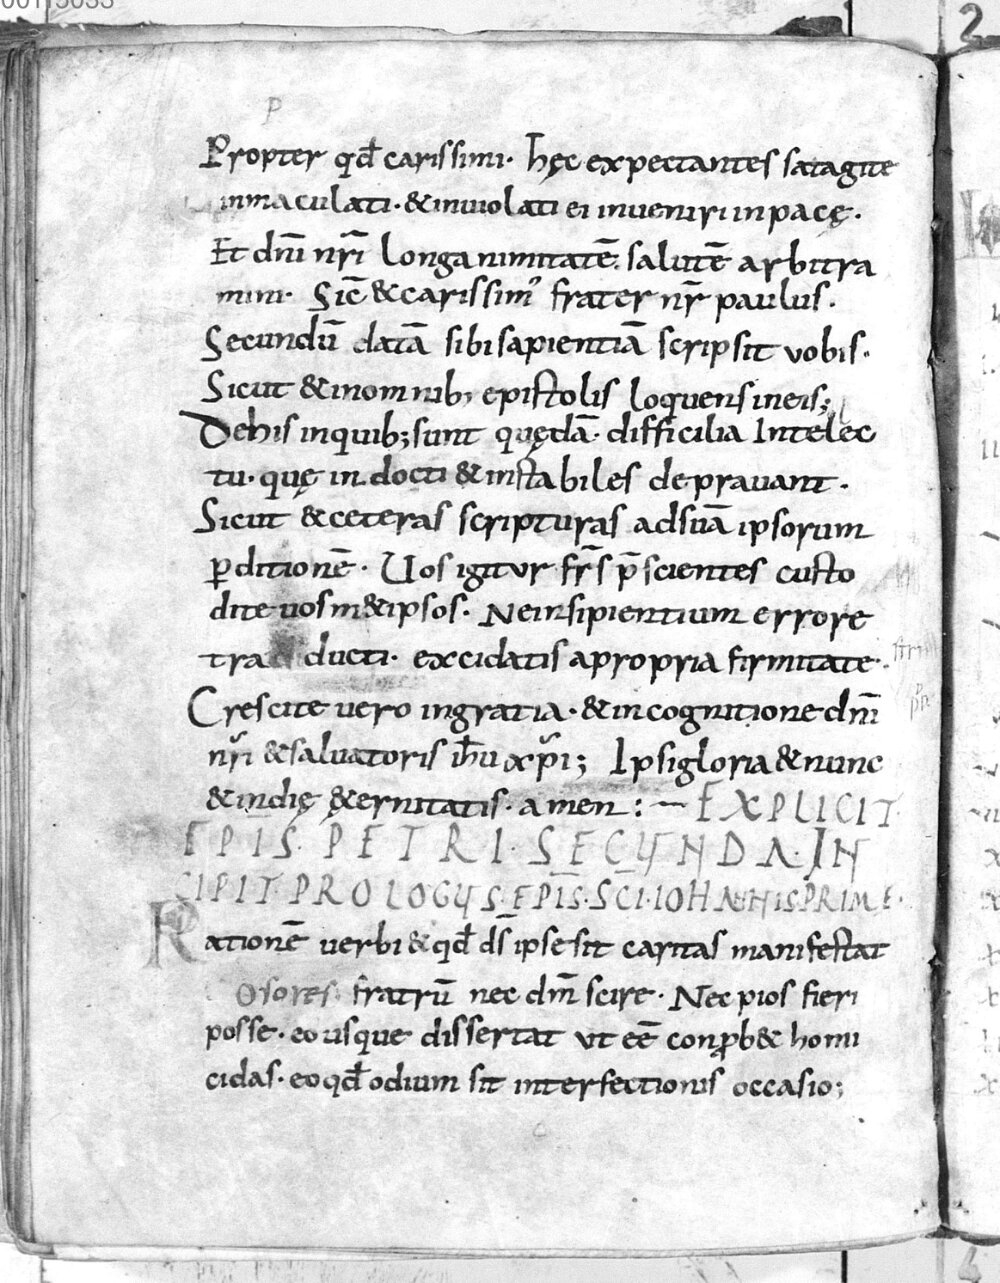 Propter qđ carissimi· hęc expectantes satagite
inmaculati·&inuiolati ei inueniri in pacę·
Et dn̄i nr̄i longanimitatē· salutē arbitra
mini· Sic̄ &carissim᾽ frater nr̄ paulus·
Secundū datā sibi sapientiā scripsit vobis·
Sicut &in omnib; epistolis loquens in eis;
De his in quib; sunt quędā· difficilia Intelec
tu· quę in docti & instabiles deprauant·
Sicut &ceteras scripturas ad suā ipsorum
ꝑditionē· Uos igitur fr̄s p̄scientes custo
dite uos m&ipsos· Ne insipientium errore
tra ducti· excidatis a propria firmitate·
Crescite uero in gratia·&in cognitione dn̄i
nr̄i &saluatoris ih̄u xp̄i; Ipsi gloria & nunc
& in dię &ernitatis· amen:— EXPLICIT
EPIS̄· PETRI· SECUNDA· IN
CIPIT PROLOGUS· EPIS̄· SC̄I· IOHANNIS PRIME·
Rationē uerbi & qđ ds̄ ipse sit caritas manifestat
osores fratrū nec dn̄m scire· Nec pios fieri
posse· eo usque dissertat ut eē conprob& homi
cidas· eo qđ odium sit interfectionis occasio;